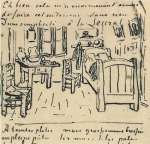 Eh bien cela m'a enormement amusé
de faire cet interieur sans rien
D'une simplicité à la Seurat.
A teintes plates mais grossierement brossées
en pleine pâte les murs lilas pâle